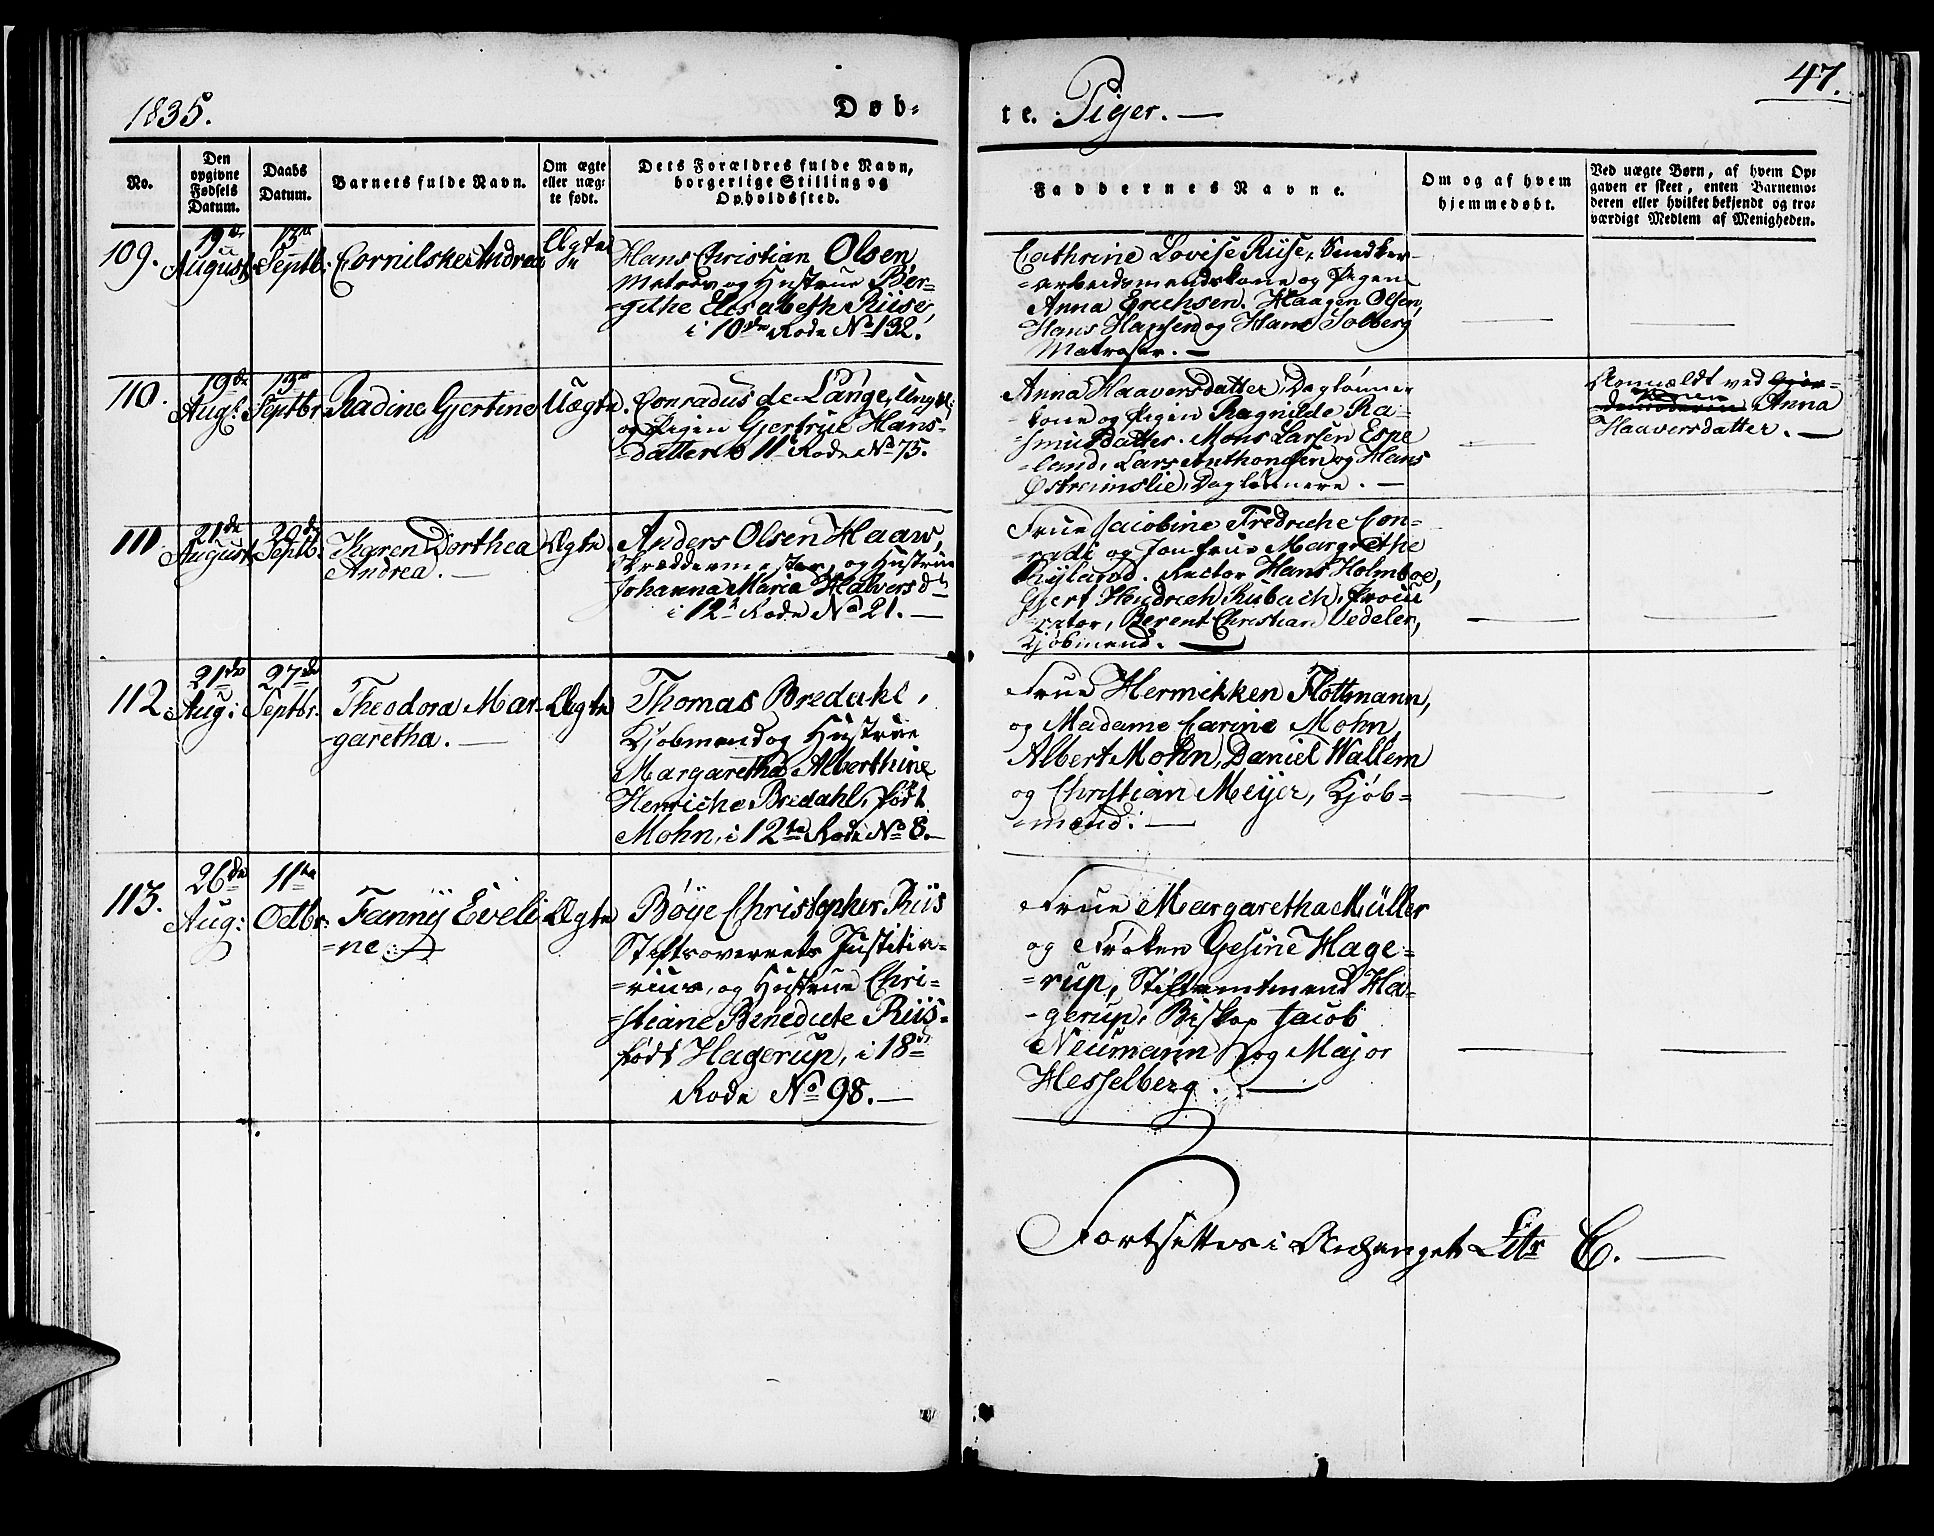 1835.
Døb-
te. Piger. —
47.
No.
Den
opgivne
Fødsels
Datum.
Daabs
Datum.
Barnets fulde Navn.
Om ægte
eller uæg-
te født.
Dets Forældres fulde Navn,
borgerlige Stilling og
Opholdssted.
Faddernes Navne.
Om og af hvem
hjemmedøbt.
Ved uægte Børn, af hvem Op-
gaven er skeet, enten Barnemo-
deren eller hvilket bekjendt og tro-
værdigt Medlem af Menigheden.
109.
19de
August
13de
Septb:
Cornilske Andrea
Ægte
Hans Christian Olsen,
Matros og Hustrue Ber-
=githe Elisabeth Riise,
i 10de Rode No 132.
Cathrine Lovise Riise,
=arbeidsmandskone og Pigen
Anna Erichsen. Haagen Olsen,
Hans Hansen og Hans Solberg
Matroser. —
110.
19de
Augt:
13de
Septbr
Radine Gjertine
Uægte
Conradus de Lange, Ungkl:
og Pigen Gjertrue Hans-
=datter i 11 Rode No 75.
Anna Haaversdatter, Daglønner
kone og Pigen Ragnilde Ra-
=smusdatter. Mons Larsen Espe
=land, Lars Anthonsen og Hans
Østreimslie, Daglønnere. —
Anmældt ved
Konen Anna
Haaversdatter. —
111.
21de
August
20de
Septb:
Karen Dorthea
Andrea. —
Ægte
Anders Olsen Haaw,
Skræddermester, og Hustrue
Johanna Maria Halversd
i 12te Rode No 21. —
Frue Jacobine Fredriche Con-
=radi og Jomfrue Margrethe
Rector Hans Holmboe,
Gjert Hendrich Kubach, Procu
=rator, Berent Christian Vedeler,
Kjøbmænd. —
112.
21de
Aug:
27de
Septbr.
Theodora Mar-
=garetha. —
Ægte
Thomas Bredahl,
Kjøbmand og Hustrue
Margaretha Alberthine
Henriche Bredahl, født
Mohn, i 12te Rode No 8. —
Frue Hermikken Flottmann,
og Madame Carine Mohn,
Albert Mohn, Daniel Wallem
og Christian Meijer, Kjøb=
=mænd. —
113.
26de
Aug:
11te
Octbr.
Fannÿ Eveli
=ne.
Ægte
Bøye Christopher Riis
Stiftsoverrets Justitia-
=rius, og Hustrue Chri-
=stiane Benedicte Riis-
født Hagerup, i 18de
Rode No 98. —
Frue Margaretha Müller
og Frøken Gesine Hage-
=rup, Stiftamtmand Ha-
=gerup, Biskop Jacob
Neumann og Major
Hesselberg. —
Fortsættes i Anhanget Litr C. —